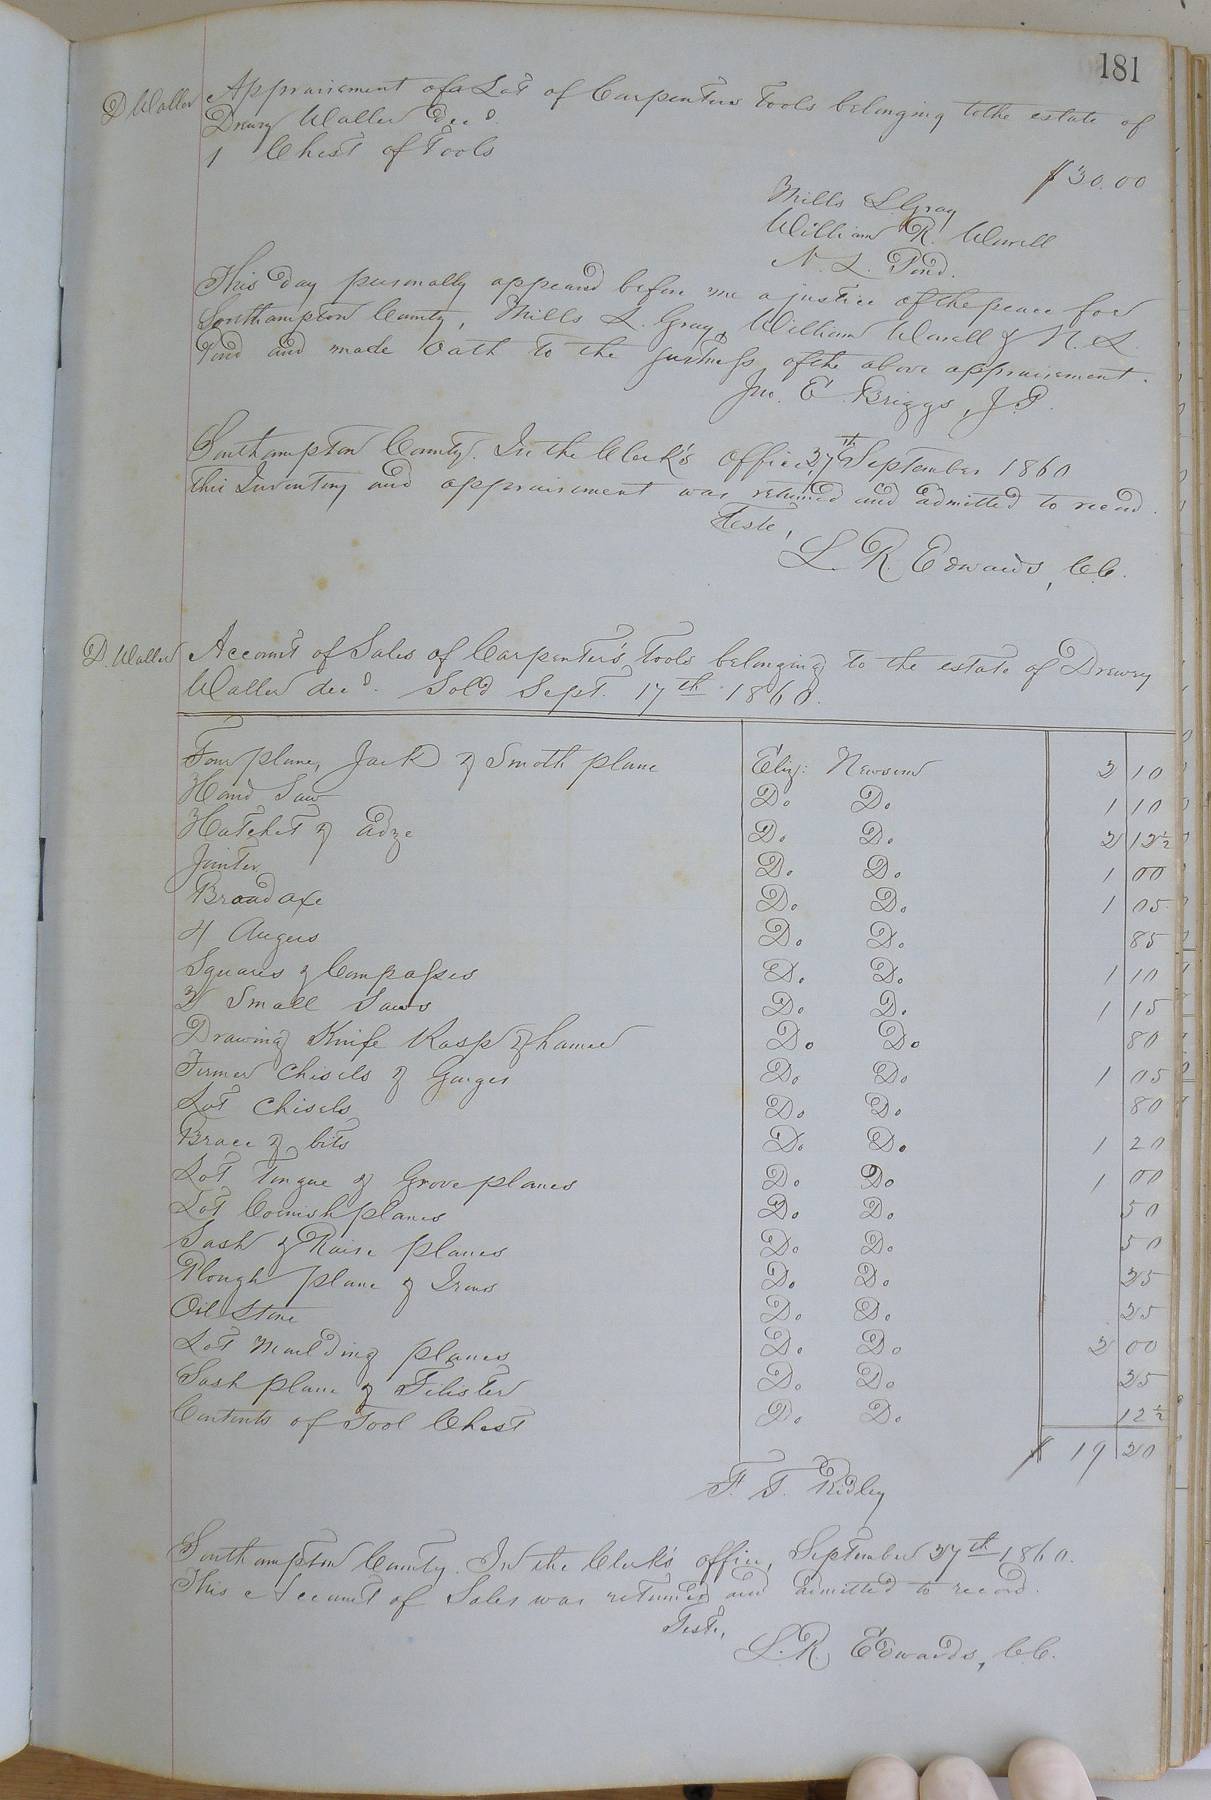 181
D Waller Appraisement of a Lot of Carpenters Tools belonging to the estate of
Drewry Waller decd.
1 Chest of Tools $30.00
Mills L. Gray
William R. Worrell
N. L. Pond.
This day personally appeared before me a justice of the peace for
Southampton County, Mills L. Gray, William Worrell & N. L.
Pond and made Oath to the justness of the above appraisement.
Jno. E. Briggs, J.P.
Southampton County. In the Clerk's office 27th September 1860
this Inventory and appraisement was returned and admitted to record.
Teste,
L. R. Edwards, C.C.
D. Waller Account of Sales of Carpenter's Tools belonging to the estate of Drewry
Waller decd. Sold Sept. 17th 1860.
Four plane, Jack & Smoth plane Eliz: Newsom 2 10
Hand Saw Do. Do. 1 10
Hatchet & adze Do. Do. 2 12½
Jointer Do. Do. 1 00
Broad axe Do. Do. 1 05
4 Augers Do. Do. 85
Squares & Compasses Do. Do. 1 10
2 Small Saws Do. Do. 1 15
Drawing Knife Rasp & hamer Do. Do. 80
Firmer Chisels & Gouges Do. Do. 1 05
Lot Chisels Do. Do. 80
Brace & bits Do. Do. 1 20
Lot Tongue & Grove planes Do. Do. 1 00
Lot Cornish planes Do. Do. 50
Sash & Raise planes Do. Do. 50
Plough plane & Irons Do. Do. 25
Oil Stone Do. Do. 25
Lot Moulding planes Do. Do. 2 00
Sash plane & Filister Do. Do. 25
Contents of Tool Chest Do. Do. 12½
$ 19 20
F. T. Ridley
Southampton County. In the Clerk's office, September 27th 1860.
This Account of Sales was returned and admitted to record.
Teste,
L. R. Edwards, C.C.